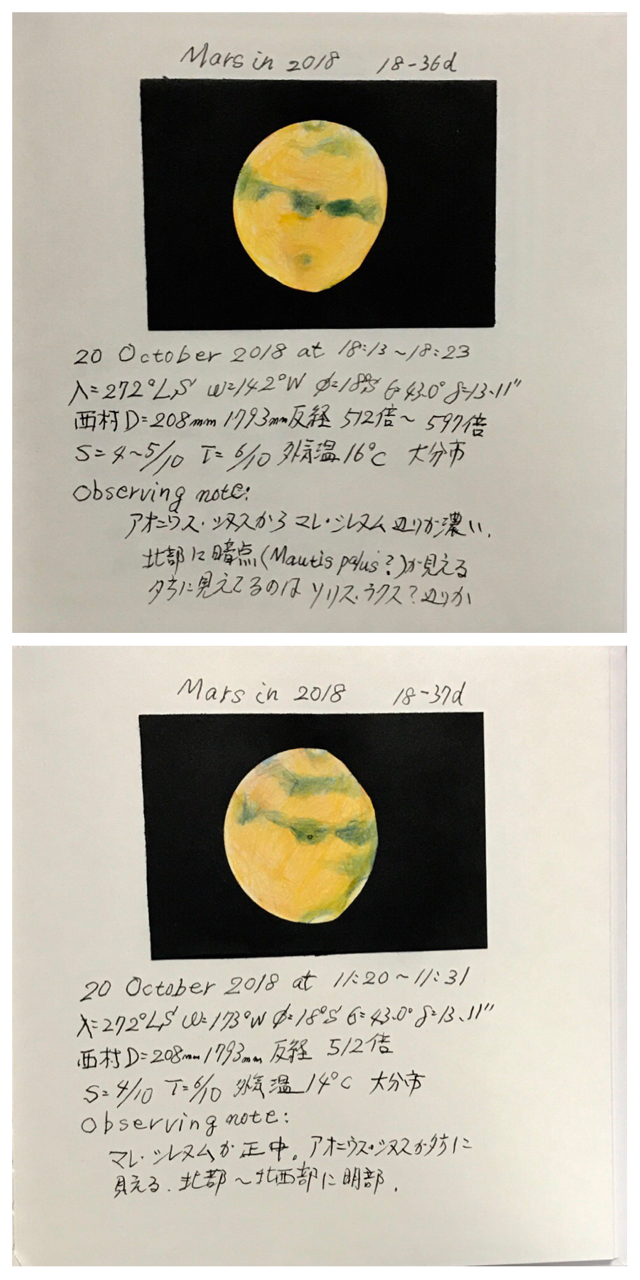 Mars in 2018 18-36d
20 October 2018 at 18:13~18:23
λ=272°LS ω=142°W φ=18°S 6=43.0° δ=13.11"
西村D=208mm 1793mm反経 512倍~597倍
S=4~5/10 T=6/10 外気温16°C 大分市
Observing note:
アオニウス・シヌスから マレ・シレヌム辺りが濃い.
北部に暗点(Mautis palus?)が見える
夕方に見えてるのは ソリス・ラクス?辺りか
Mars in 2018 18-37d
20 October 2018 at 11:20~11:31
λ=272°LS ω=173°W φ=18°S 6=43.0° δ=13.11"
西村D=208mm 1793mm 反経 512倍
S=4/10 T=6/10 外気温 14°C 大分市
Observing note:
マレ・シレヌムが正中。アオニウス・シヌスが夕方に
見える. 北部~北西部に明部.